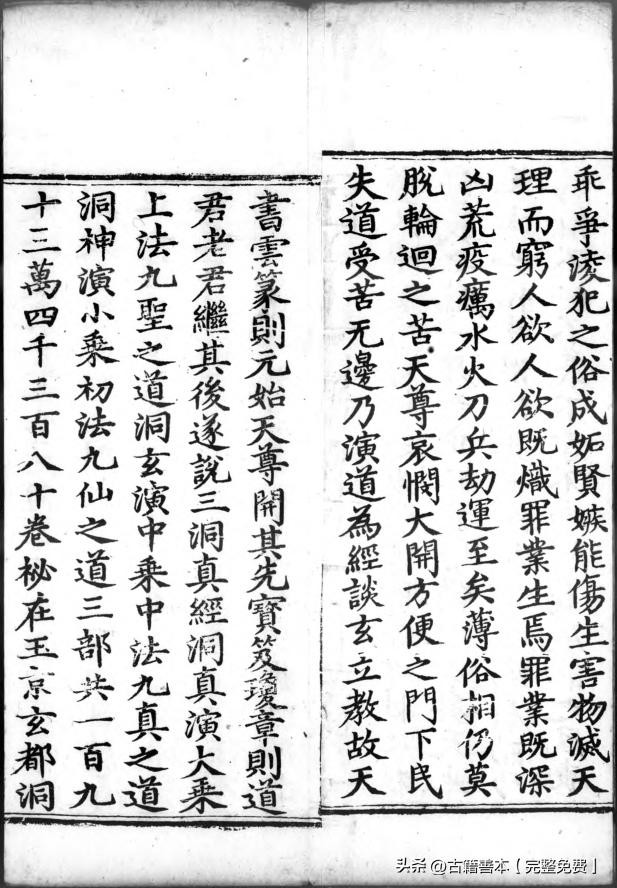 乖爭淩犯之俗成妬賢嫉能傷生害物滅天
理而窮人欲人欲既熾罪業生焉罪業既深
凶荒疫癘水火刀兵劫運至矣薄俗相仍莫
脫輪迴之苦天尊哀憫大開方便之門下民
失道受苦无邊乃演道為經談玄立教故天
書雲篆則元始天尊開其先寶笈瓊章則道
君老君繼其後遂說三洞真經洞真演大乘
上法九聖之道洞玄演中乘中法九真之道
洞神演小乘初法九仙之道三部共一百九
十三萬四千三百八十卷祕在玉京玄都洞
头条@古籍善本【完整免费】